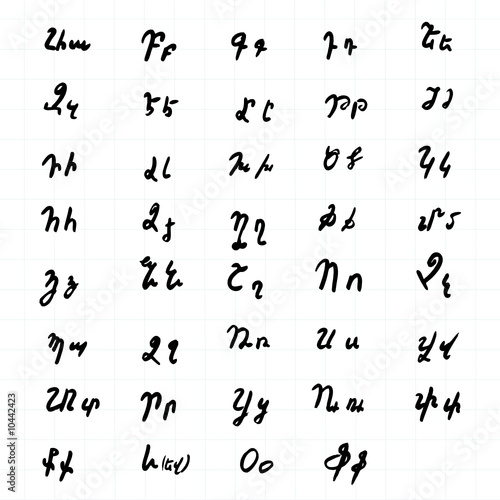 Աա Բբ Գգ Դդ Եե
Զզ Էէ Ըը Թթ Ժժ
Իի Լլ Խխ Ծծ Կկ
Հհ Ձձ Ղղ Ճճ Մմ
Յյ Նն Շշ Ոո Չչ
Պպ Ջջ Ռռ Սս Վվ
Տտ Րր Ցց Ուու Փփ
Քք և(եվ) Օօ Ֆֆ
Adobe Stock | #10442423